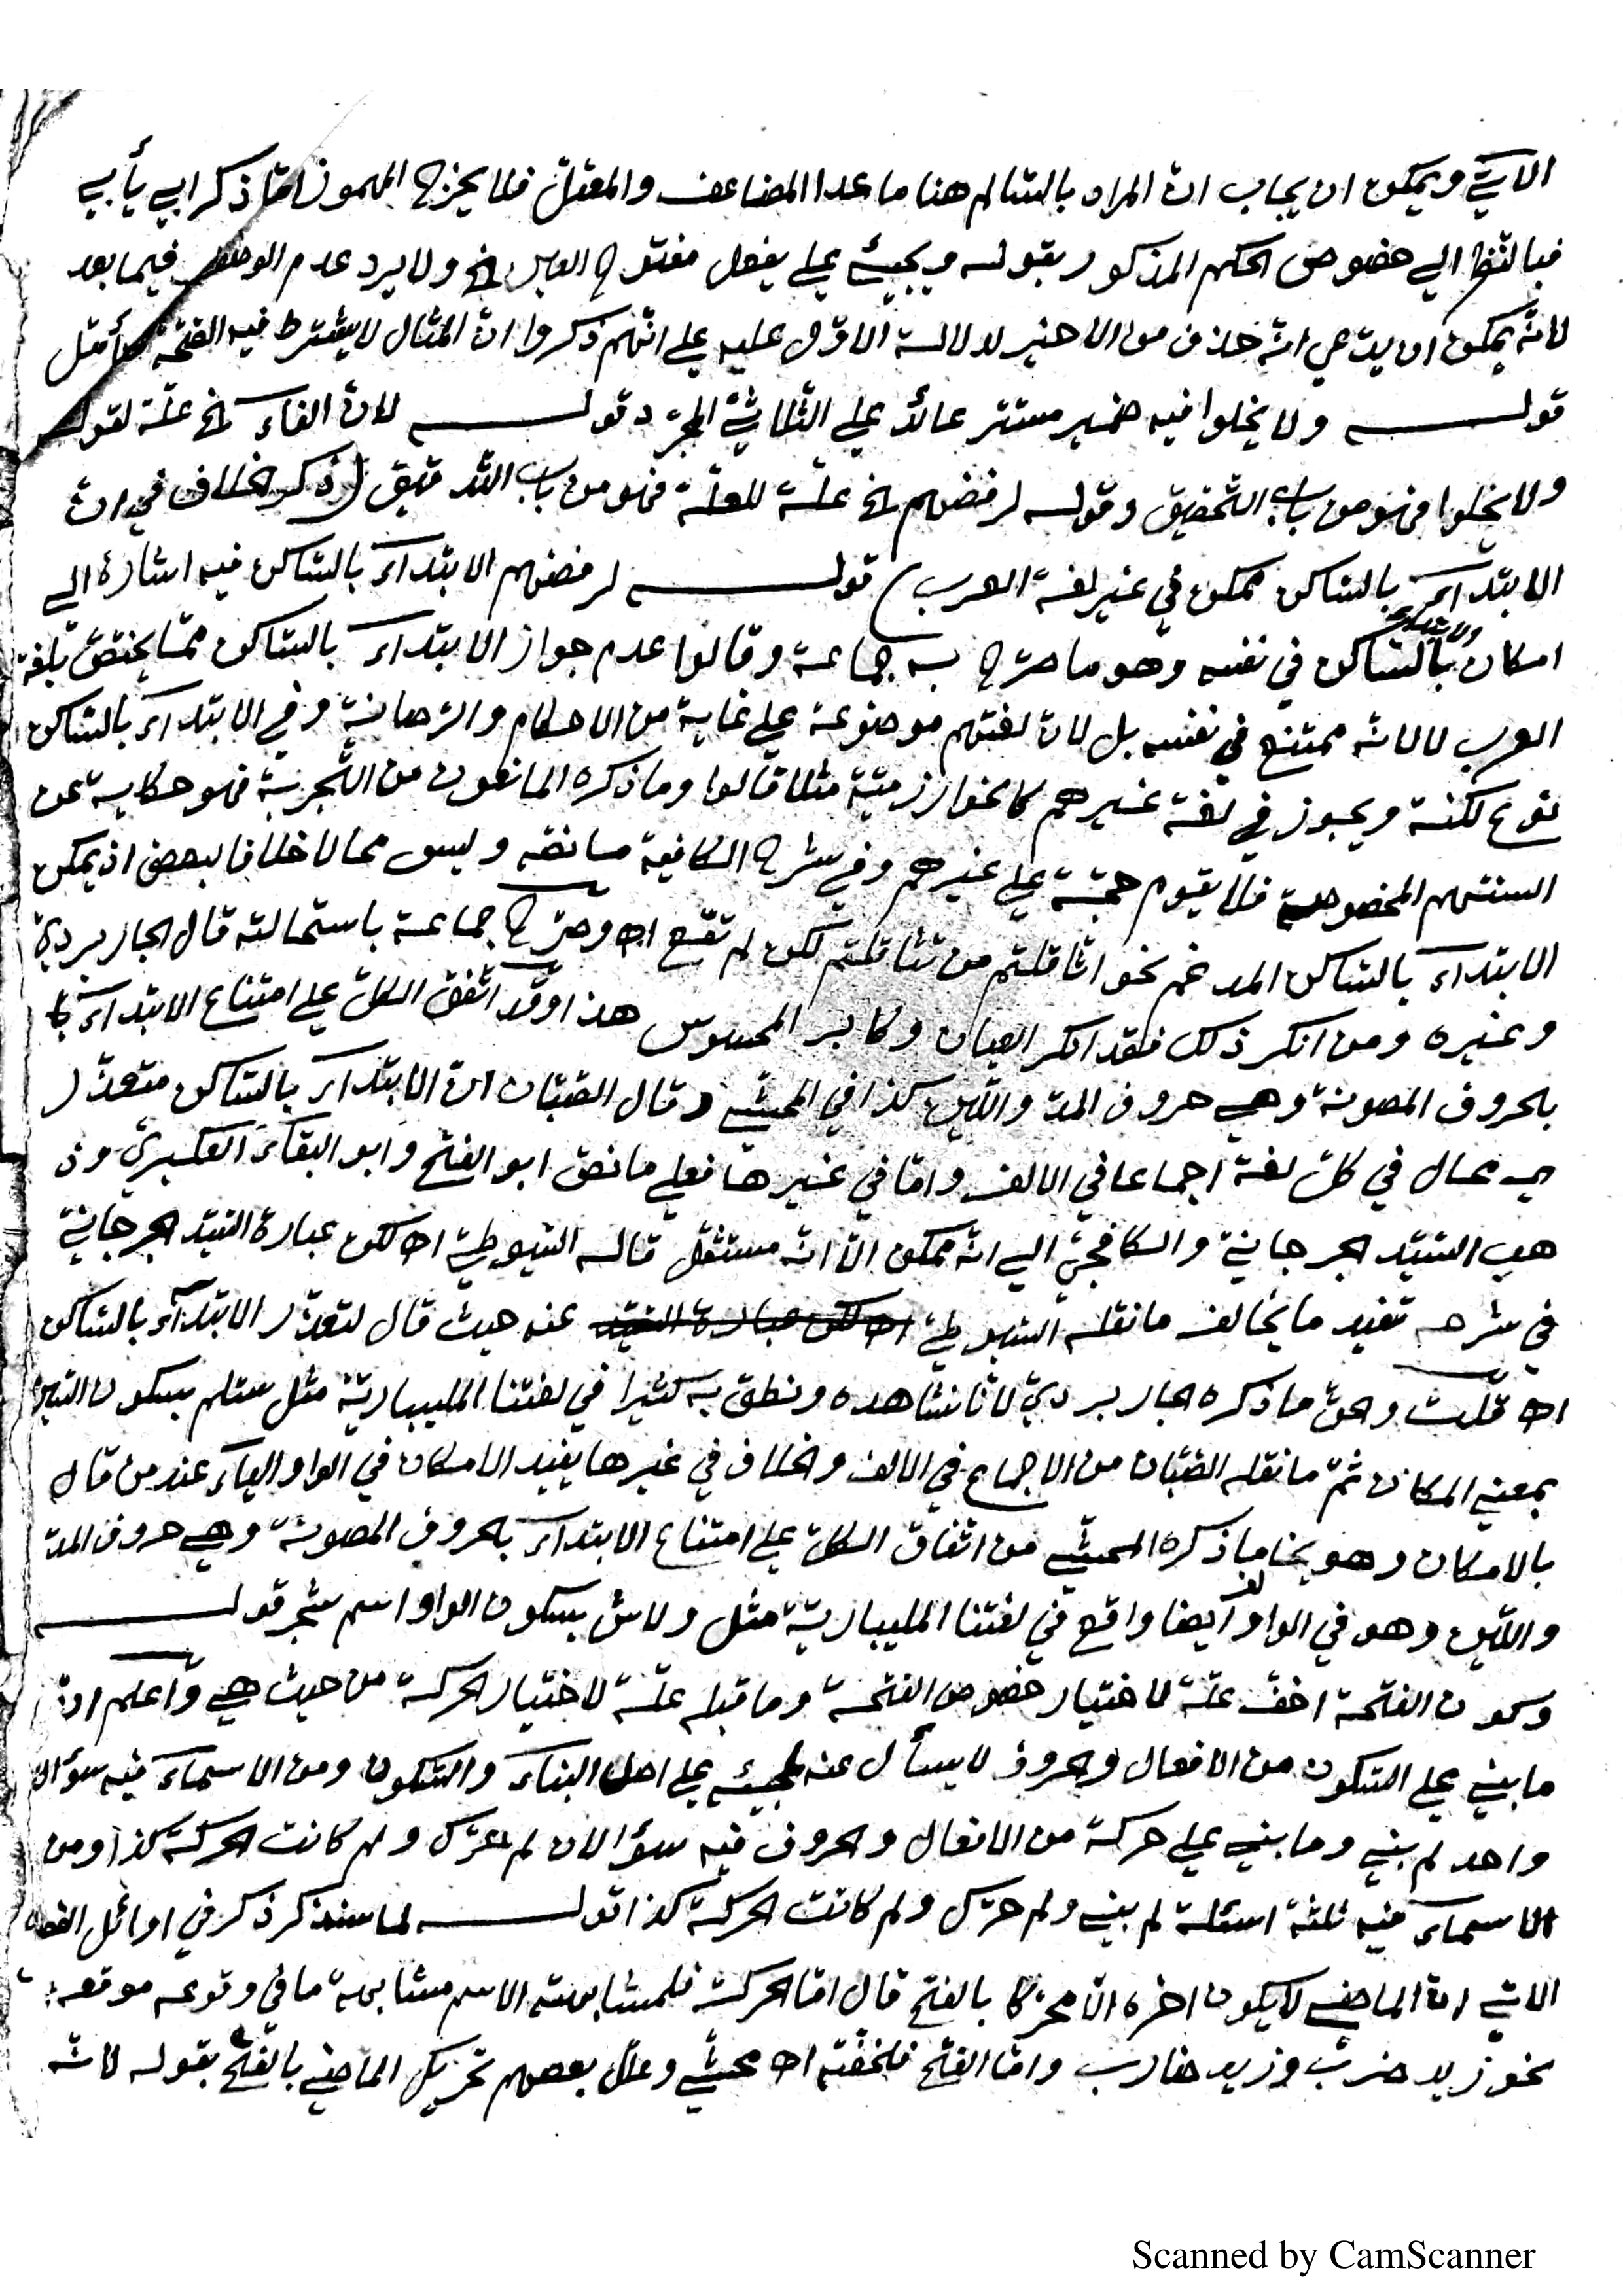 الآتي ويمكن ان يجاب ان المراد بالسالم هنا ما عدا المضاعف والمعتل فلا يخرج المهموز امّا ذكر ابي يأبي
فبالنظر الي خصوص الحكم المذكور بقوله ويجيئ علي يفعل مفتوح العين الخ ولا يرد عدم فيما بعد
لانّه يمكن ان يدّعي انّه حذف من الاخير لدلالة الاوّل عليه علي انّهم ذكروا انّ المثال لا يشترط فيه الصحّة تأمّل
قولـــه ولا يخلوا فيه ضمير مستتر عائد علي الثّلاثيّ المجرّد قولـــه لانّ الفاء الخ علّة لقوله
ولا يخلوا فهو من باب التّحقيق وقوله لرفضهم الخ علّة للعلّة فهو من باب التّدقيق (ذكر الخلاف في ان
الابتداء بالسّاكن ممكن في غير لغة العرب) قولـــه لرفضهم الابتداء بالسّاكن فيه اشارة الي
امكان الابتداء بالسّاكن في نفسه وهو ما صرّح به جماعة وقالوا عدم جواز الابتداء بالسّاكن ممّا يختصّ بلغة
العرب لا لانّه ممتنع في نفسه بل لانّ لغتهم موضوعة علي غاية من الاحكام والرّصانة وفي الابتداء بالسّاكن
نوع لكنة ويجوز في لغة غيرهم كالخوارزميّة مثلا قالوا وما ذكره المانعون من التّجربة فهو حكاية عن
السنتهم المخصوصة فلا يقوم حجّة علي غيرهم وفي شرح الكافية ما نصّه وليس محالا خلافا لبعض اذ يمكن
الابتداء بالسّاكن المدغم نحو اثّاقلتم من تثاقلتم لكن لم تقع اه وصرّح جماعة باستحالته قال الجاربرديّ
وغيره ومن انكر ذلك فقد انكر العيان وكابر المحسوس هذا وقد اتّفق الكلّ علي امتناع الابتداء با
بلحروف المصوتة وهي حروف المدّ واللّين كذا في المحشّي وقال الصّبّان انّ الابتداء بالسّاكن متعذّر
ي محال في كلّ لغة اجماعا في الالف وامّا في غيرها فعلي ما نصّ ابو الفتح وابو البقاء العكبريّ وذ
هب السّيّد الجرجانيّ والكافجيّ الي انّه ممكن الّا انّه مستثقل قاله السّيوطيّ اه لكن عبارة السّيّد الجرجانيّ
في شرحه تفيد ما يخالف ما نقله السّيوطيّ اه لكن عبارة السّيّد عنه حيث قال لتعذّر الابتداء بالسّاكن
اه قلت والحقّ ما ذكره الجاربرديّ لانّا نشاهده ونطق به كثيرا في لغتنا المليباريّة مثل ستلم بسكون السّين
بمعني المكان ثمّ ما نقله الصّبّان من الاجماع في الالف والخلاف في غيرها يفيد الامكان في الواو والياء عند من قال
بالامكان وهو يخالف ما ذكره المحشّي من اتّفاق الكلّ علي امتناع الابتداء بالحروف المصوتة وهي حروف المدّ
واللّين وهو في الواو ايضا واقع في لغتنا المليباريّة مثل ولاش بسكون الواو اسم شجر قولـــه
وكون الفتحة اخفّ علّة لاختيار خصوص الفتحة وما قبله علّة لاختيار الحركة من حيث هي واعلم انّ
ما بني علي السّكون من الافعال والحروف لا يسأل عنه لمجيئه علي اصل البناء والسّكون ومن الاسماء فيه سؤال
واحد لم بني وما بني علي حركة من الافعال والحروف فيه سؤالان لم حرّك ولم كانت الحركة كذا ومن
الاسماء فيه ثلثة اسئلة لم بني ولم حرّك ولم كانت الحركة كذا قولـــه لما سنذكر ذكر في اوائل الفصل
الاتي انّ الماضي لا يكون اخره الّا محرّكا بالفتح قال امّا الحركة فلمشابهته الاسم مشابهة ما في وقوعه موقعه
نحو زيد ضرب وزيد ضارب وامّا الفتح فلخفّته اه محشّي وعلّل بعضهم تحريك الماضي بالفتح بقوله لانّه
Scanned by CamScanner